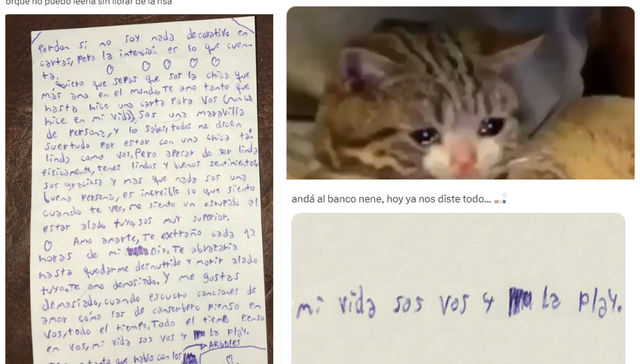 orque no puedo leerla sin llorar de la risa
Perdon si no soy nada decorativo en
cartas, pero la intención es lo que cuen-
ta.
Quiero que sepas que sos la chica que
más amo en el mundo, Te amo tanto que
hasta hice una carta para vos (nunca
hice en mi vida), sos una maravilla
de persona, y lo sabes, todos me dicen
suertudo por estar con una chica tan
linda como vos, Pero apesar de ser linda
fisicamente, tenes lindos y buenos sentimientos
sos graciosa y mas que nada sos una
buena persona, es increible lo que siento
cuando te veo, me siento un estupido al
estar alado tuyo, sos muy superior.
Amo amarte, Te extraño cada 12
horas de mi Dia, Te abrazaria
hasta quedarme desnutrido y morir alado
tuyo, Te amo demasiado. Y me gustas
demasiado, cuando escucho canciones de
amor como las de canserbero pienso en
vos, todo el tiempo, Todo el tiemp pienso
en vos, mi vida sos vos y la play.
ARBOLES
tanto que hablo con los
andá al banco nene, hoy ya nos diste todo...
mi vida sos vos y la play.